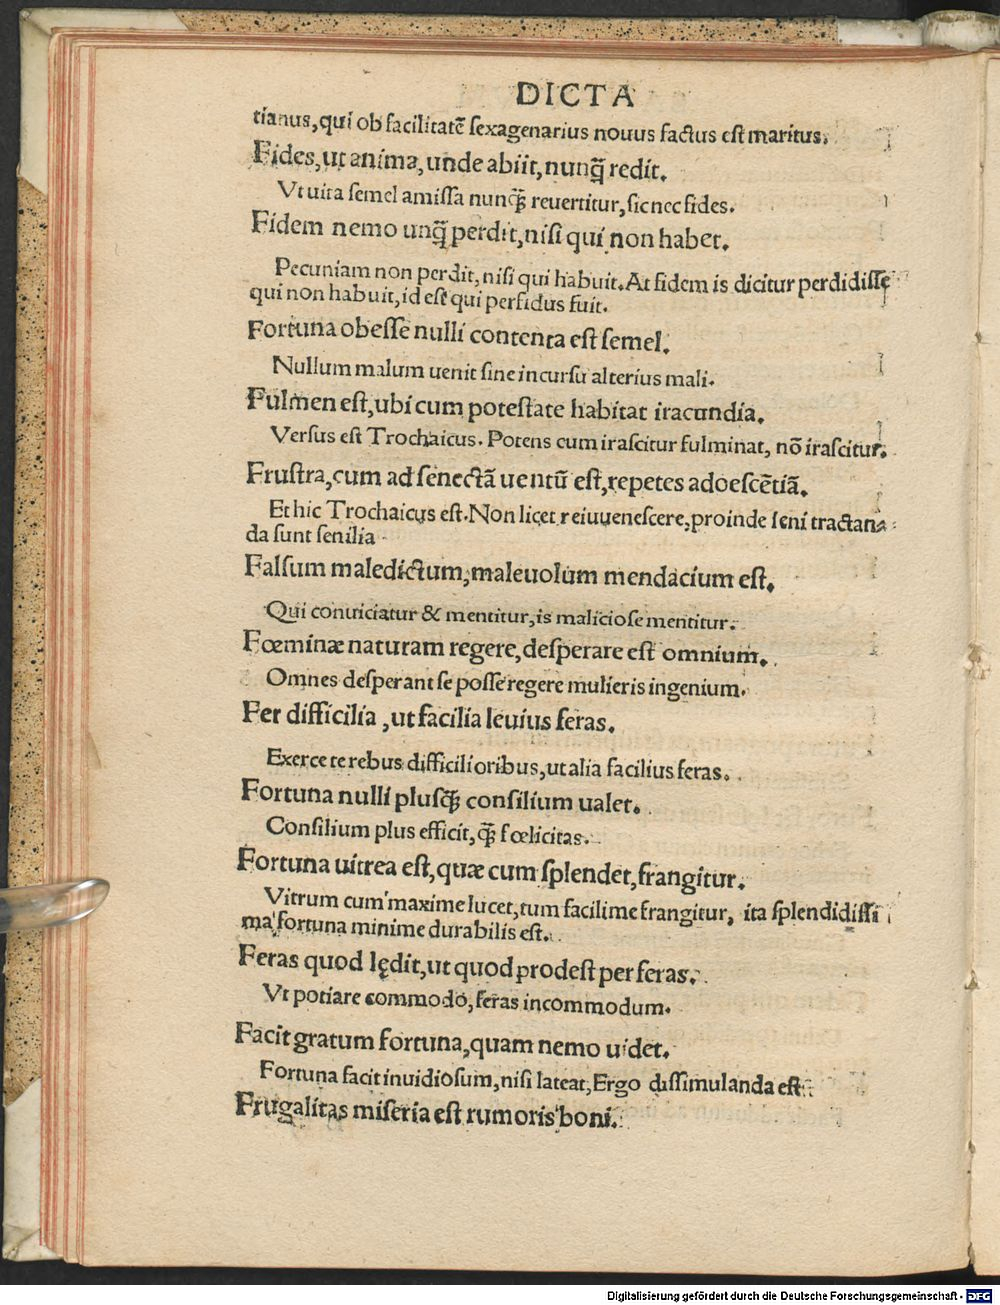 DICTA
tianus, qui ob facilitatē ſexagenarius nouus factus eſt maritus.
Fides, ut anima, unde abiit, nunq̃ redit.
Vt uita ſemel amiſſa nunq̃ reuertitur, ſic nec fides.
Fidem nemo unq̃ perdit, niſi qui non habet.
Pecuniam non perdit, niſi qui habuit. At fidem is dicitur perdidiſſe
qui non habuit, id eſt qui perfidus fuit.
Fortuna obeſſe nulli contenta eſt ſemel.
Nullum malum uenit ſine incurſu alterius mali.
Fulmen eſt, ubi cum poteſtate habitat iracundia.
Verſus eſt Trochaicus. Potens cum iraſcitur fulminat, nō iraſcitur.
Fruſtra, cum ad ſenectã uentũ eſt, repetes adoeſcẽtiã.
Et hic Trochaicus eſt. Non licet reiuueneſcere, proinde ſeni tractan-
da ſunt ſenilia
Falſum maledictum, maleuolum mendacium eſt.
Qui conuiciatur & mentitur, is malicioſe mentitur.
Fœminæ naturam regere, deſperare eſt omnium.
Omnes deſperant ſe poſſe regere mulieris ingenium.
Fer difficilia, ut facilia leuius feras.
Exerce te rebus difficilioribus, ut alia facilius feras.
Fortuna nulli pluſq̃ conſilium ualet.
Conſilium plus efficit, q̃ fœlicitas.
Fortuna uitrea eſt, quæ cum ſplendet, frangitur.
Vitrum cum maxime lucet, tum facilime frangitur, ita ſplendidiſſi
ma fortuna minime durabilis eſt.
Feras quod lędit, ut quod prodeſt perferas.
Vt potiare commodo, feras incommodum.
Facit gratum fortuna, quam nemo uidet.
Fortuna facit inuidioſum, niſi lateat, Ergo diſſimulanda eſt
Frugalitas miſeria eſt rumoris boni.
Digitalisierung gefördert durch die Deutsche Forschungsgemeinschaft - DFG